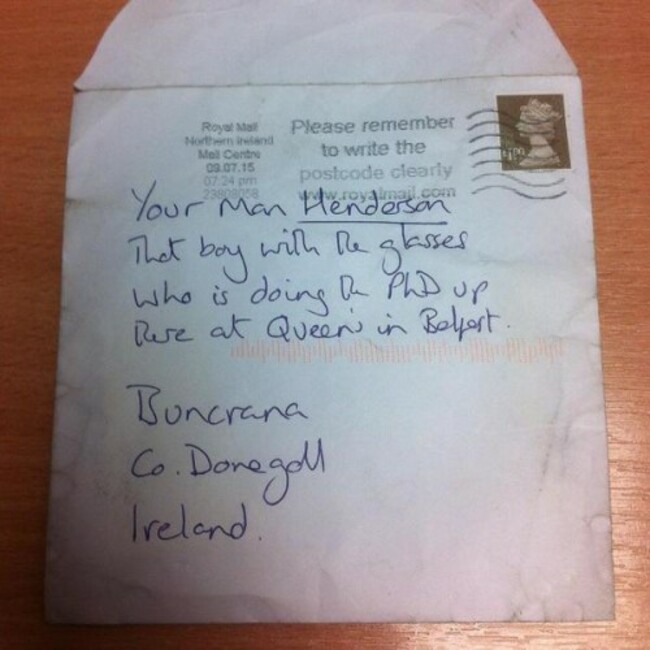 Royal Mail
Northern Ireland
Mail Centre
09.07.15
07:24 pm
23809058
Please remember
to write the
postcode clearly
www.royalmail.com
£1.00
Your Man Henderson
That boy with the glasses
who is doing the PhD up
there at Queen's in Belfast.
Buncrana
Co. Donegall
Ireland.